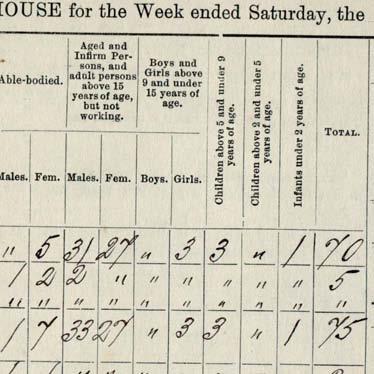 HOUSE for the Week ended Saturday, the
Able-bodied. | Aged and Infirm Persons, and adult persons above 15 years of age, but not working. | Boys and Girls above 9 and under 15 years of age. | Children above 5 and under 9 years of age. | Children above 2 and under 5 years of age. | Infants under 2 years of age. | TOTAL.
Males. | Fem. | Males. | Fem. | Boys. | Girls.
" 5 31 27 " 3 3 " 1 70
1 2 2 " " " " " " 5
" " " " " " " " " "
1 7 33 27 " 3 3 " 1 75